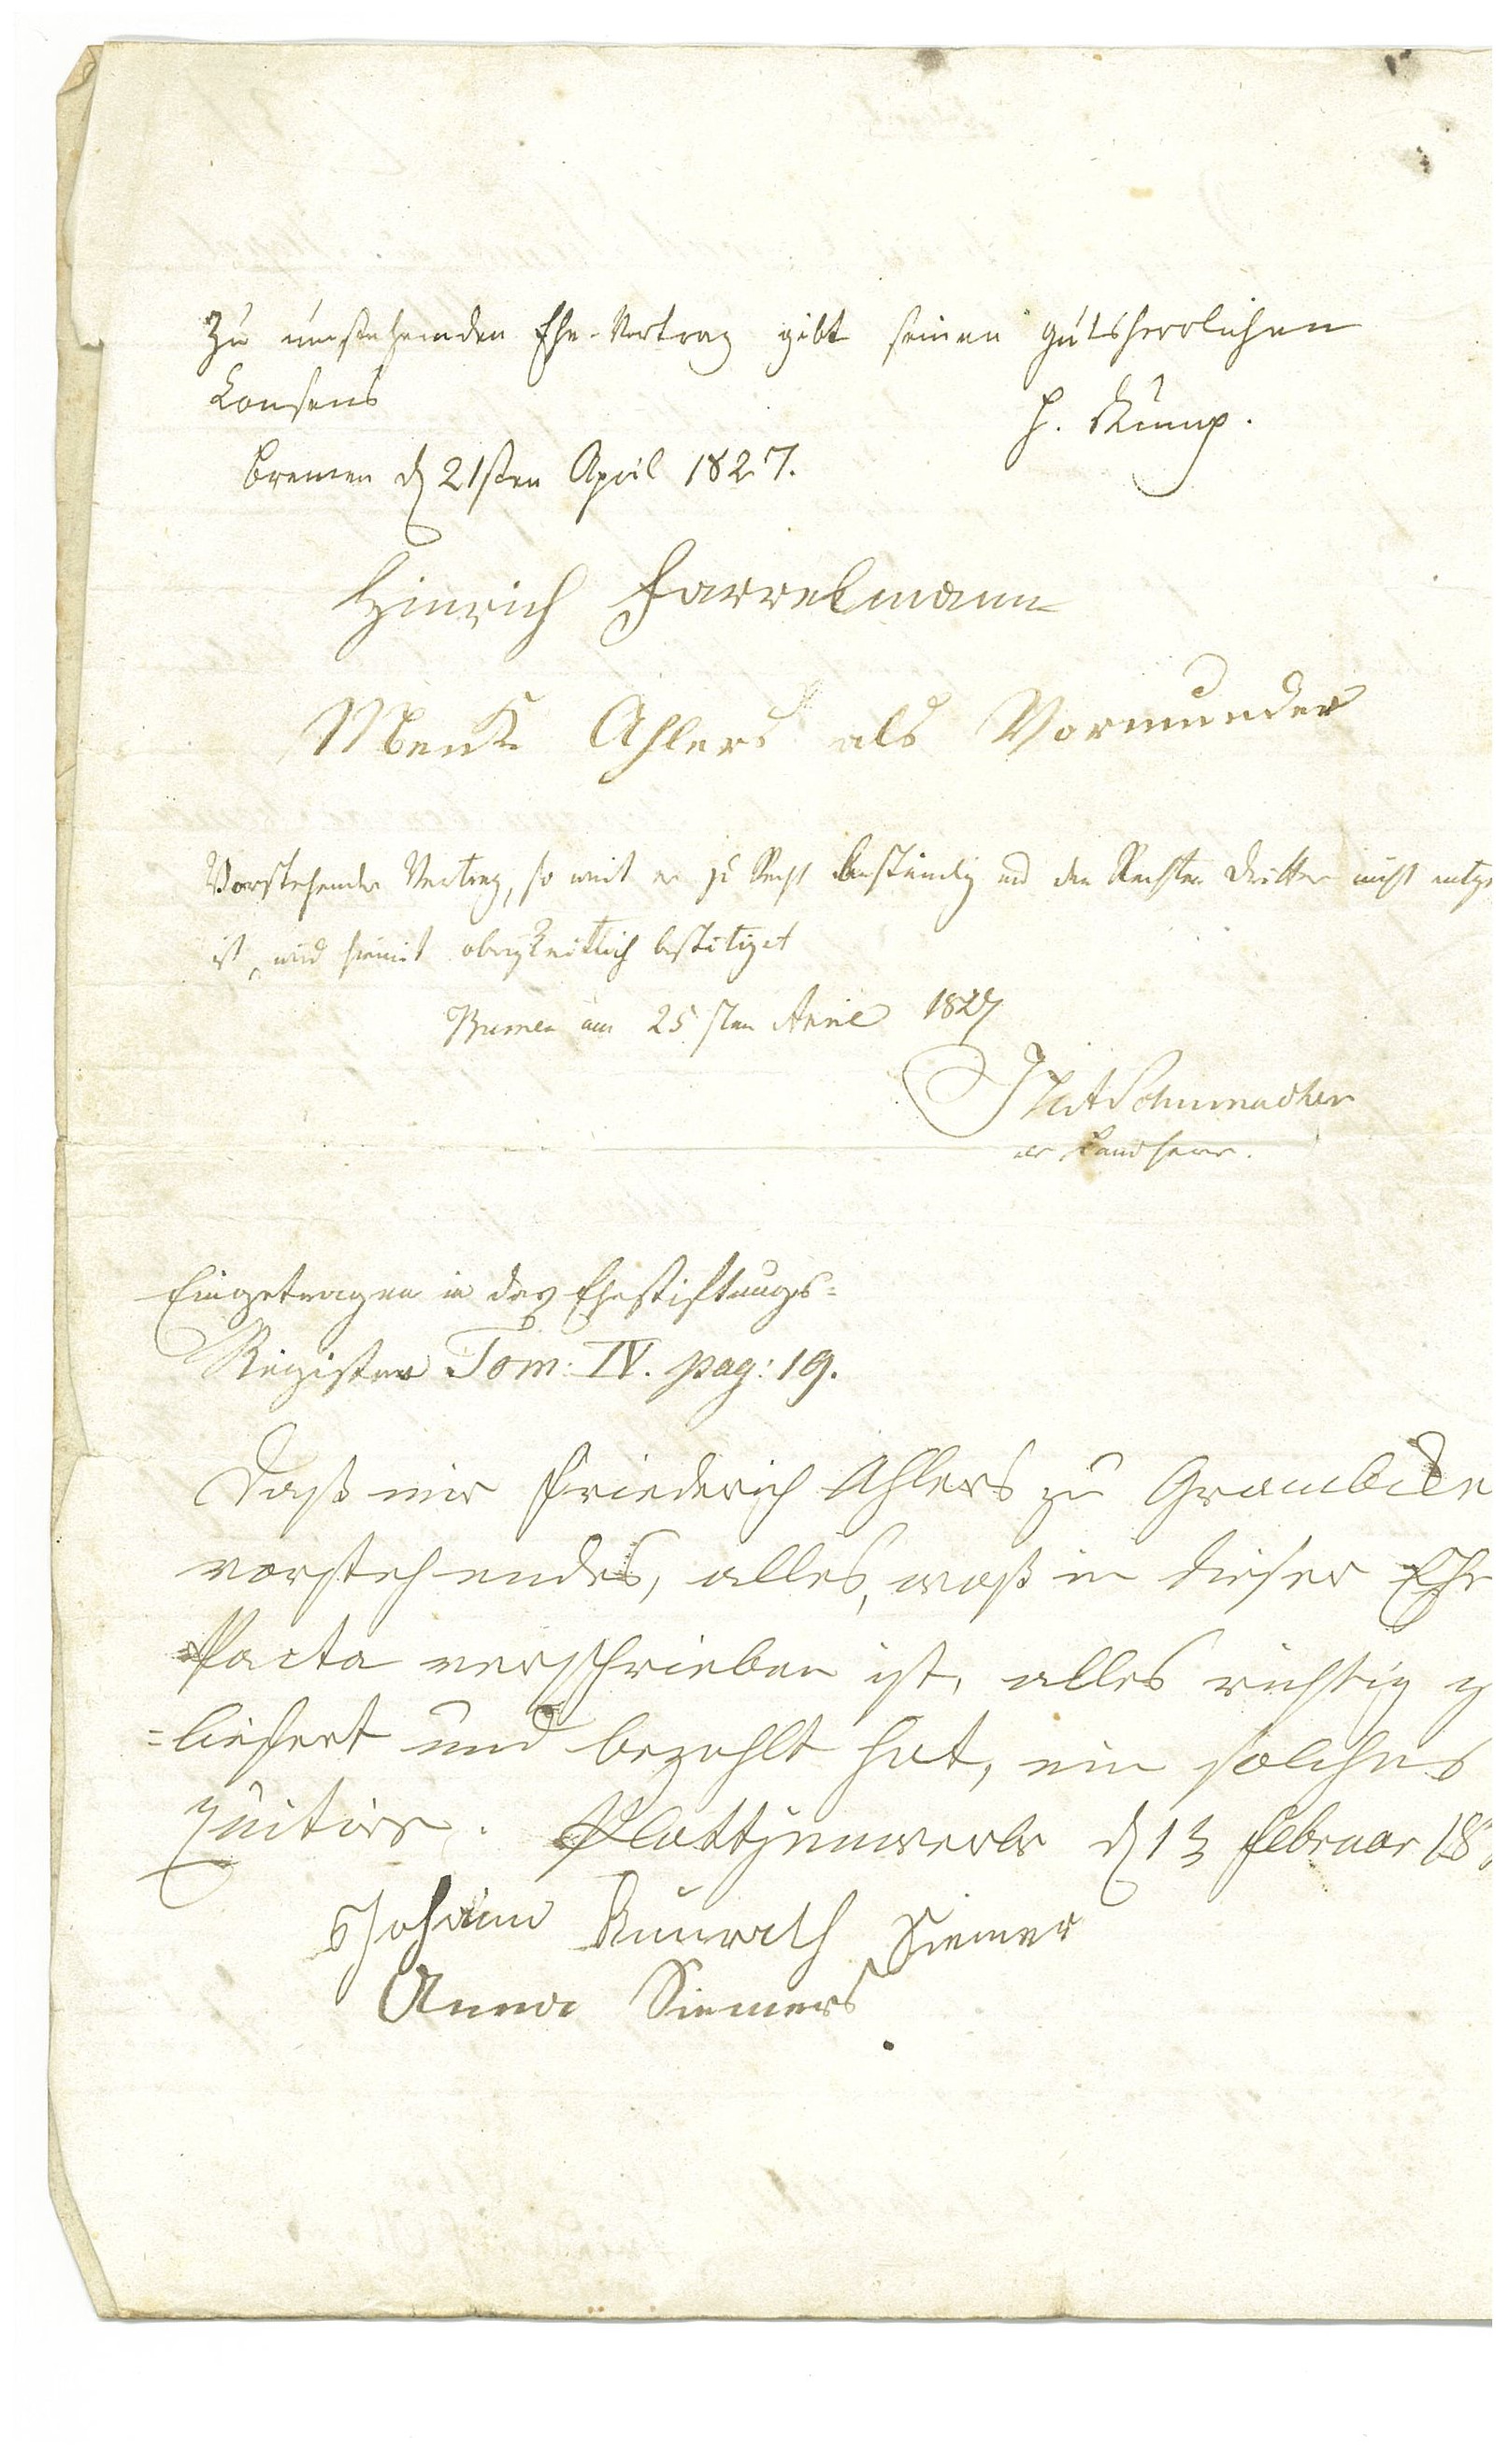 Zu umstehenden Ehe-Vertrag gibt seinen gutsherrlichen
Consens
H. Kump.
Bremen d 21sten April 1827.
Hinrich Harrelmann
Menk Ahlers als Vormunder
Vorstehender Vertrag, so weit er zu Recht beständig und den Rechten Dritter nicht entge
ist, wird hiemit obrigkeitlich bestätiget
Bremen am 25sten April 1827
Schumacher
als Landherr.
Eingetragen in das Ehestiftungs=
Register Tom: IV. pag: 19.
Daß mir Friederich Ahlers zu Grambke
vorstehendes, alles, waß in dieser Ehe
Pacta verschrieben ist, alles richtig g
=liefert und bezahlt hat, ein solches
quitire. Plattjenwerbe d 13 Februar 18
Johann Kunrath Siemer
Anna Siemers